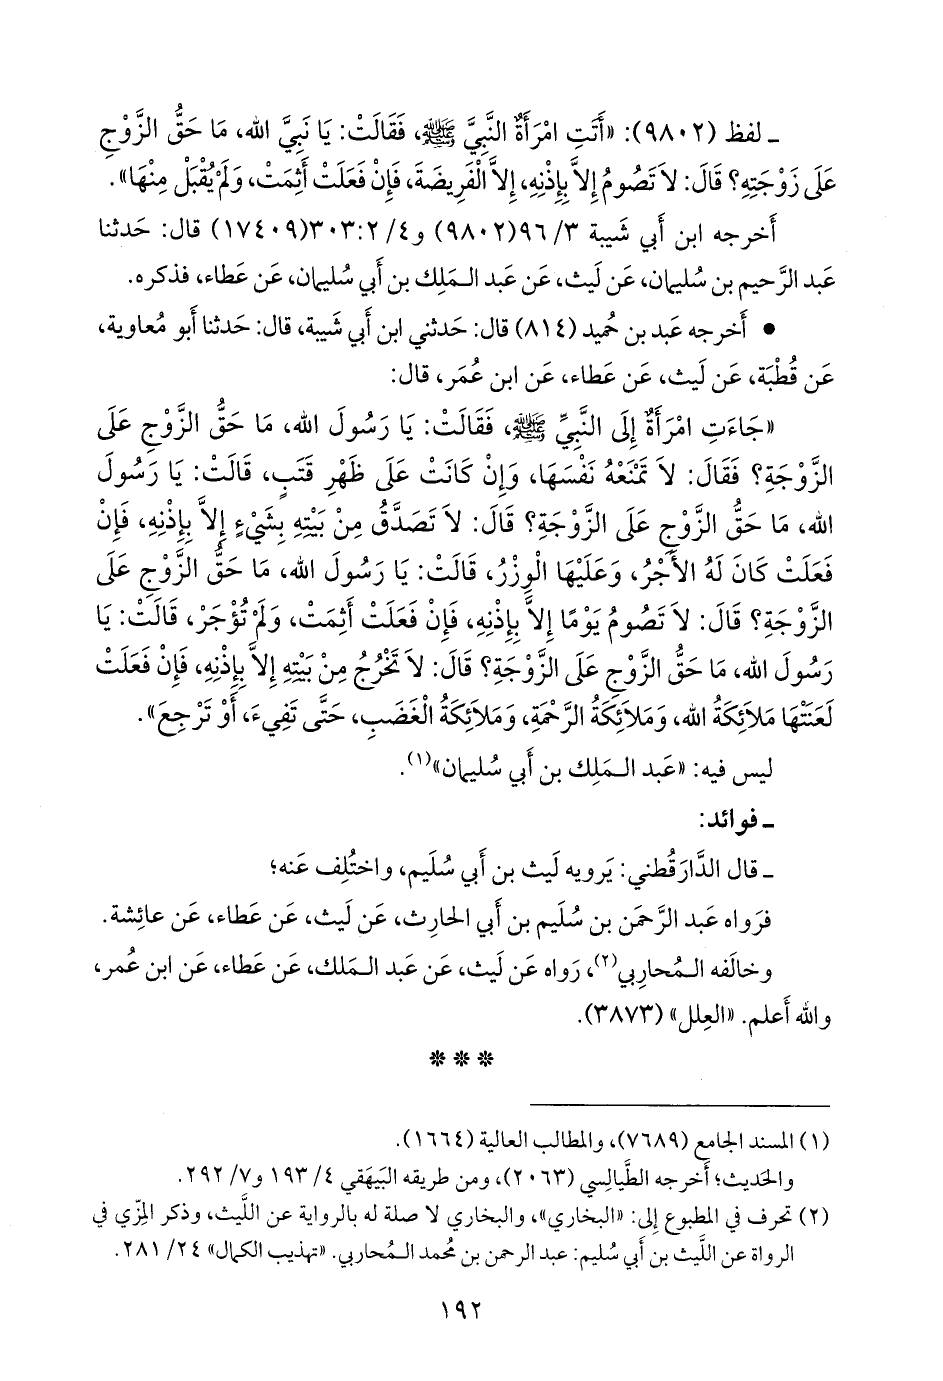 ـ لفظ (٩٨٠٢): «أَتَتِ امْرَأَةٌ النَّبِيَّ ﷺ، فَقَالَتْ: يَا نَبِيَّ الله، مَا حَقُّ الزَّوْجِ
عَلَى زَوْجَتِهِ؟ قَالَ: لاَ تَصُومُ إِلاَّ بِإِذْنِهِ، إِلاَّ الْفَرِيضَةَ، فَإِنْ فَعَلَتْ أَثِمَتْ، وَلَمْ يُقْبَلْ مِنْهَا».
أَخرجه ابن أَبي شَيبة ٣/ ٩٦(٩٨٠٢) و٤/ ٣٠٣:٢(١٧٤٠٩) قال: حَدثنا
عَبد الرَّحيم بن سُليمان، عَن لَيث، عَن عَبد الـمَلِك بن أَبي سُليمان، عَن عَطاء، فذكره.
• أَخرجه عَبد بن حُميد (٨١٤) قال: حَدثني ابن أَبي شَيبة، قال: حَدثنا أَبو مُعاوية،
عَن قُطْبَة، عَن لَيث، عَن عَطاء، عَن ابن عُمَر، قال:
«جَاءَتِ امْرَأَةٌ إِلَى النَّبِيِّ ﷺ، فَقَالَتْ: يَا رَسُولَ الله، مَا حَقُّ الزَّوْجِ عَلَى
الزَّوْجَةِ؟ فَقَالَ: لاَ تَمْنَعْهُ نَفْسَهَا، وَإِنْ كَانَتْ عَلَى ظَهْرِ قَتَبٍ، قَالَتْ: يَا رَسُولَ
الله، مَا حَقُّ الزَّوْجِ عَلَى الزَّوْجَةِ؟ قَالَ: لاَ تَصَدَّقُ مِنْ بَيْتِهِ بِشَيْءٍ إِلاَّ بِإِذْنِهِ، فَإِنْ
فَعَلَتْ كَانَ لَهُ الأَجْرُ، وَعَلَيْهَا الْوِزْرُ، قَالَتْ: يَا رَسُولَ الله، مَا حَقُّ الزَّوْجِ عَلَى
الزَّوْجَةِ؟ قَالَ: لاَ تَصُومُ يَوْمًا إِلاَّ بِإِذْنِهِ، فَإِنْ فَعَلَتْ أَثِمَتْ، وَلَمْ تُؤْجَرْ، قَالَتْ: يَا
رَسُولَ الله، مَا حَقُّ الزَّوْجِ عَلَى الزَّوْجَةِ؟ قَالَ: لاَ تَخْرُجُ مِنْ بَيْتِهِ إِلاَّ بِإِذْنِهِ، فَإِنْ فَعَلَتْ
لَعَنَتْهَا مَلاَئِكَةُ الله، وَمَلاَئِكَةُ الرَّحْمَةِ، وَمَلاَئِكَةُ الْغَضَبِ، حَتَّى تَفِيءَ، أَوْ تَرْجِعَ».
ليس فيه: «عَبد الـمَلِك بن أَبي سُليمان»(١).
ـ فوائد:
ـ قال الدَّارَقُطني: يَرويه لَيث بن أَبي سُلَيم، واختُلِف عَنه؛
فرَواه عَبد الرَّحمَن بن سُلَيم بن أَبي الحارِث، عَن لَيث، عَن عَطاء، عَن عائِشة.
وخالَفه الـمُحاربي(٢)، رَواه عَن لَيث، عَن عَبد الـمَلك، عَن عَطاء، عَن ابن عُمر،
والله أَعلم. «العِلل» (٣٨٧٣).
* * *
(١) المسند الجامع (٧٦٨٩)، والمطالب العالية (١٦٦٤).
والحَديث؛ أَخرجه الطَّيالِسي (٢٠٦٣)، ومن طريقه البَيهَقي ٤/ ١٩٣ و٧/ ٢٩٢.
(٢) تحرف في المطبوع إلى: «البخاري»، والبخاري لا صلة له بالرواية عن اللَّيث، وذكر المِزِّي في
الرواة عن اللَّيث بن أَبي سُليم: عبد الرحمن بن مُحمد الـمُحاربي. «تهذيب الكمال» ٢٤/ ٢٨١.
١٩٢